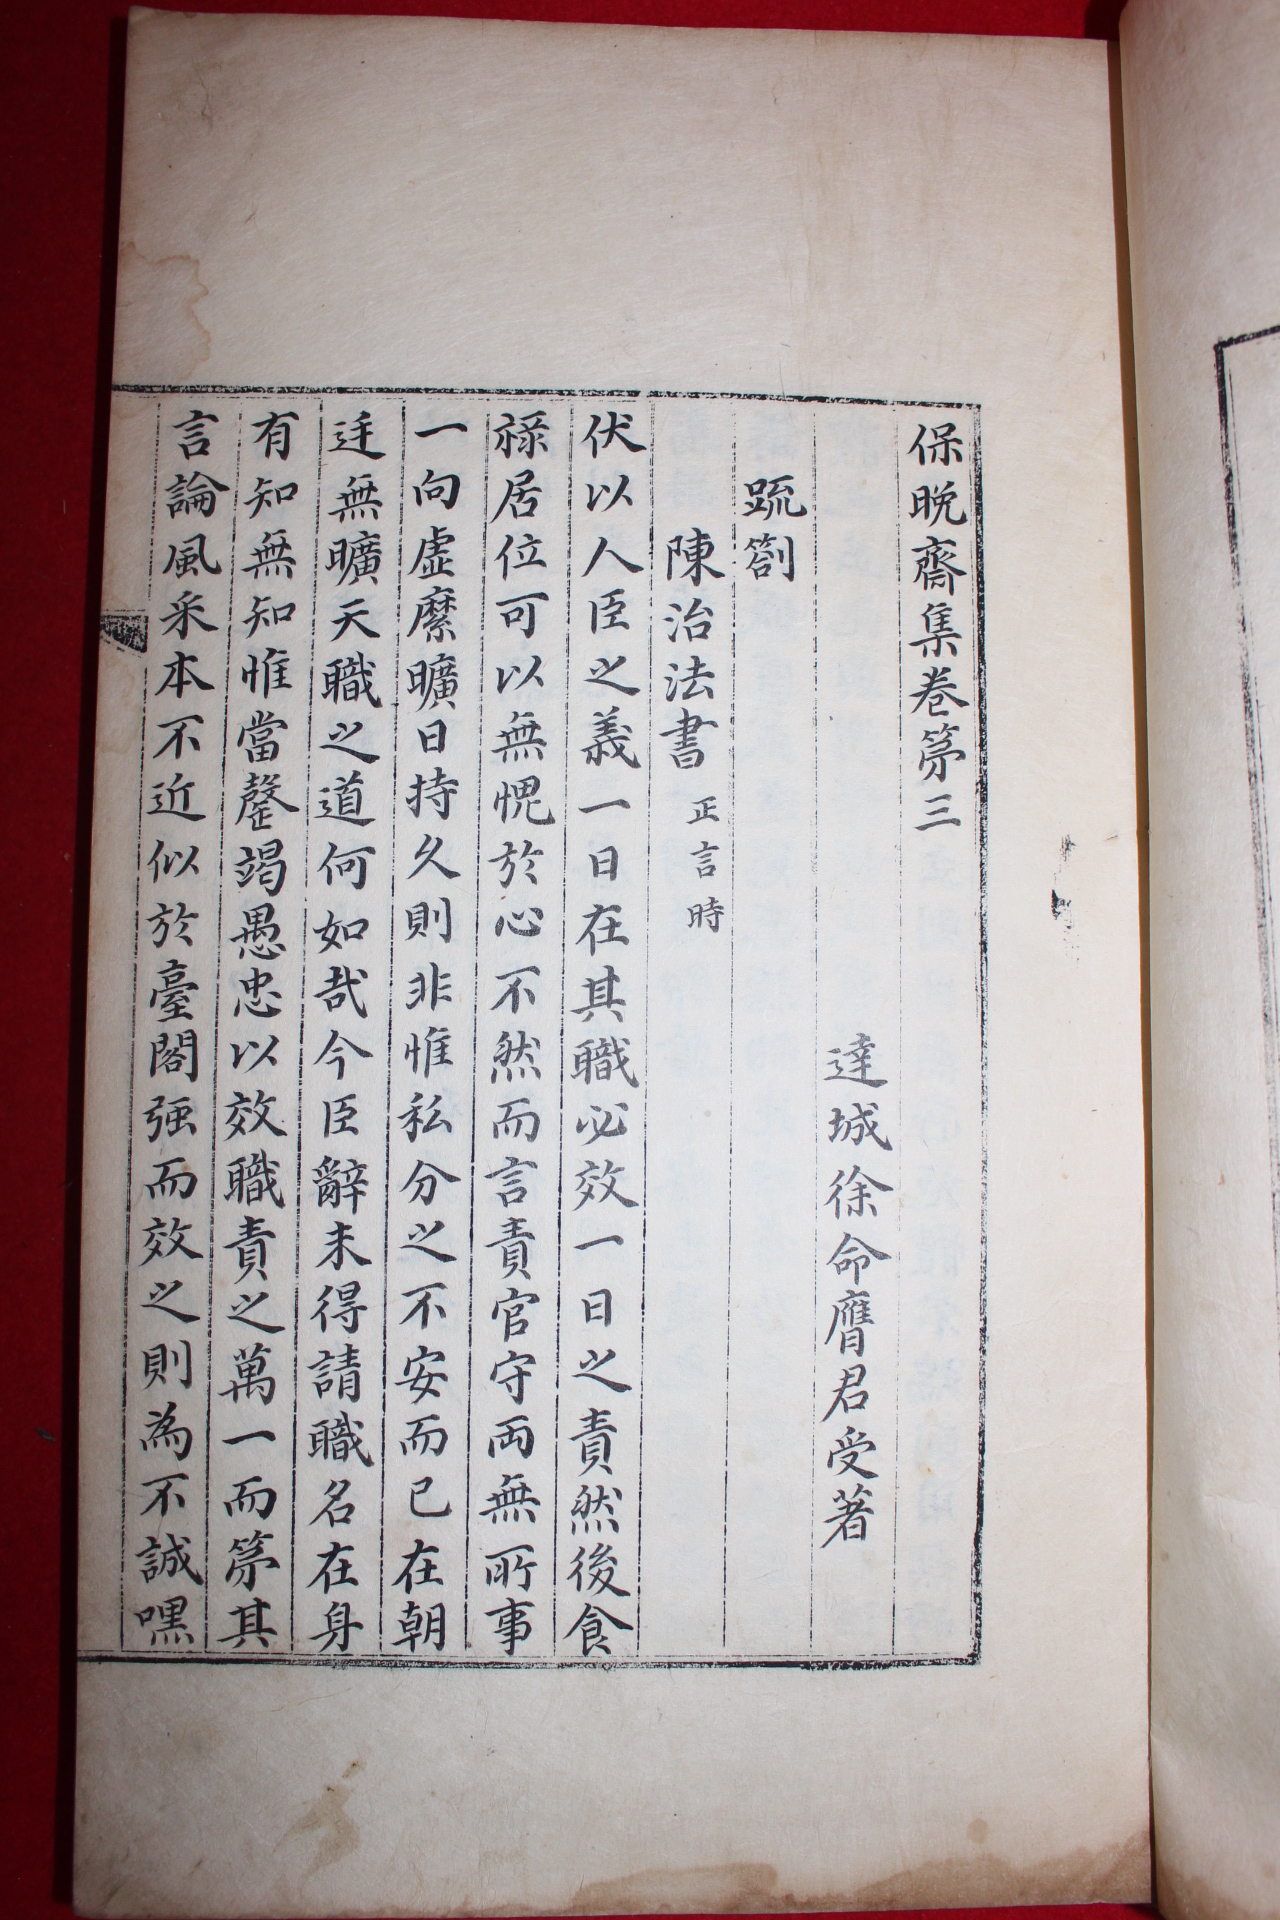 保晩齋集卷苐三
達城徐命膺君受著
疏劄
陳治法書 正言時
伏以人臣之義一日在其職必效一日之責然後食
祿居位可以無愧於心不然而言責官守兩無所事
一向虛縻曠日持久則非惟私分之不安而已在朝
廷無曠天職之道何如哉今臣辭未得請職名在身
有知無知惟當罄竭愚忠以效職責之萬一而苐其
言論風采本不近似於臺閣强而效之則為不誠嘿